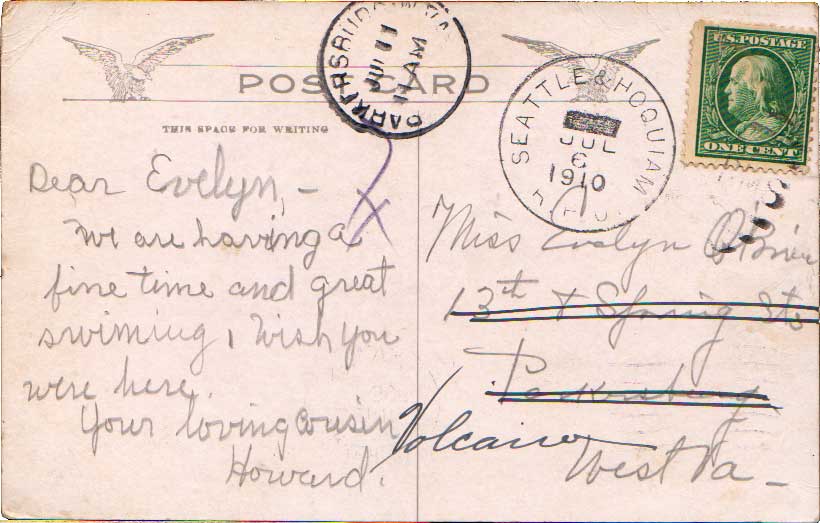 POST CARD
THIS SPACE FOR WRITING
PARKERSBURG W.VA.
JUL 11
11 AM
SEATTLE & HOQUIAM
JUL
6
1910
R.P.O.
U.S. POSTAGE
ONE CENT
Dear Evelyn, –
We are having a
fine time and great
swiming, Wish you
were here.
Your loving Cousin
Howard.
Miss Evelyn O'Brien
13th & Spring Sts
Parkersburg
Volcano
West Va –